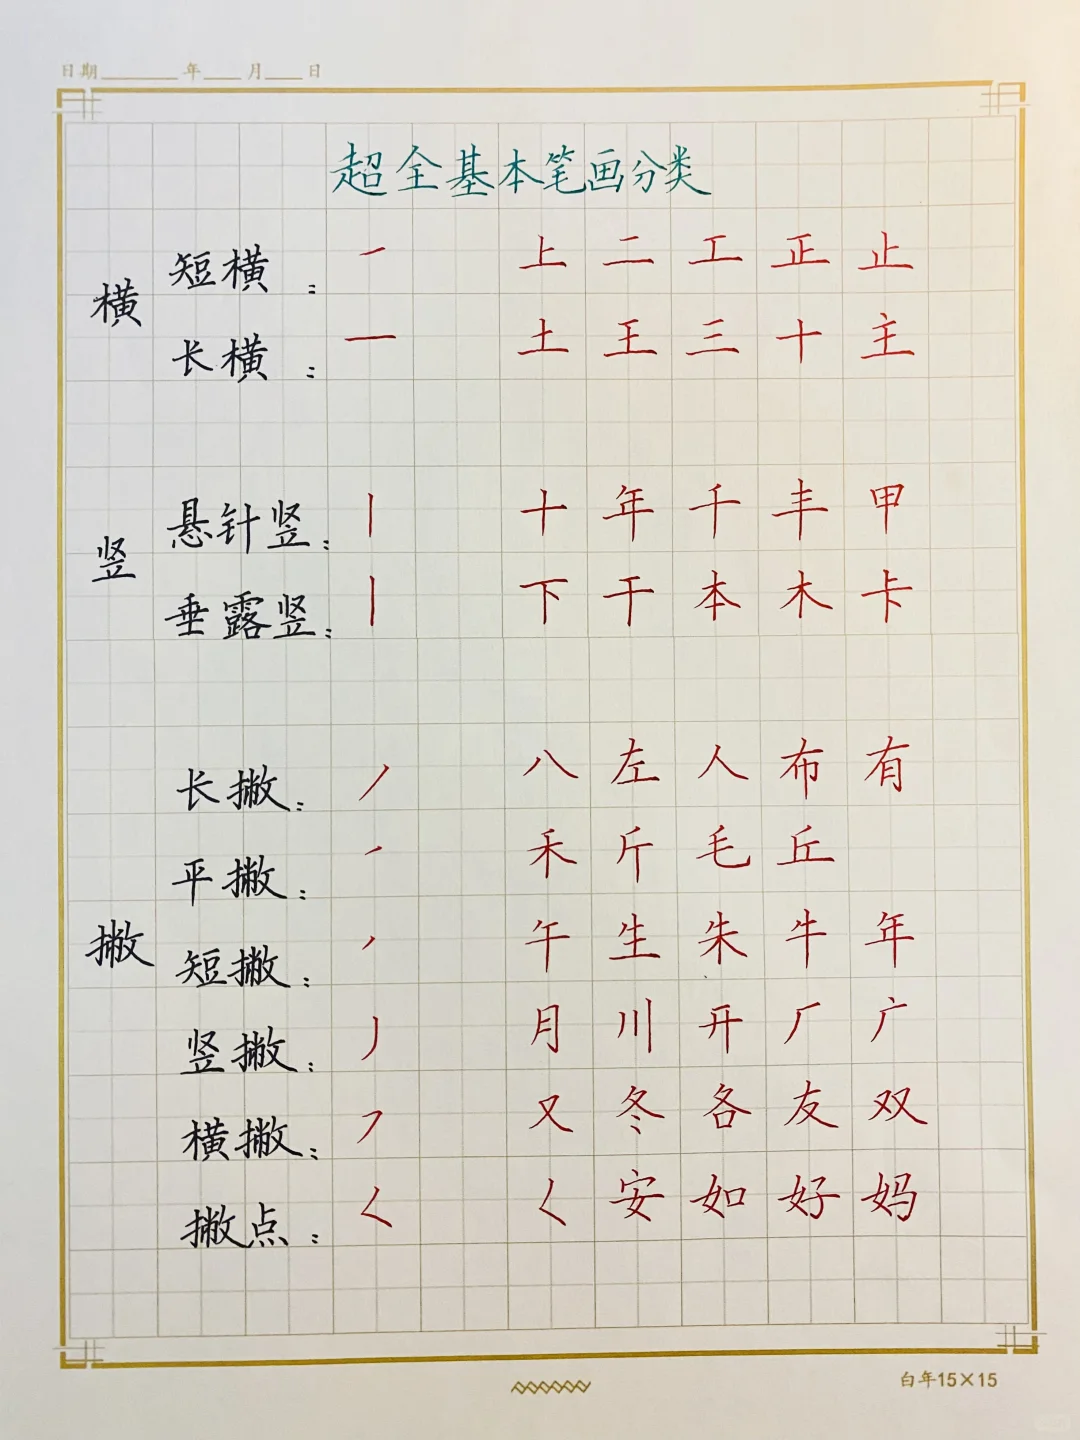 日期 年 月 日
超全基本笔画分类
横
短横： ㇀ 上 二 工 正 止
长横： 一 土 王 三 十 主
竖
悬针竖： 丨 十 年 千 丰 甲
垂露竖： 丨 下 干 本 木 卡
撇
长撇： 丿 八 左 人 布 有
平撇： ㇒ 禾 斤 毛 丘
短撇： ㇒ 午 生 朱 牛 年
竖撇： 丿 月 川 开 厂 广
横撇： ㇇ 又 冬 各 友 双
撇点： ㇛ ㇛ 安 如 好 妈
白年15×15